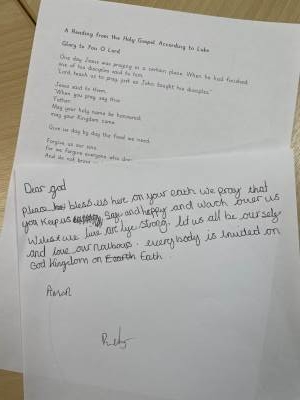 A Reading from the Holy Gospel According to Luke
Glory to You O Lord
One day Jesus was praying in a certain place. When he had finished,
one of his disciples said to him,
"Lord, teach us to pray, just as John taught his disciples."
Jesus said to them,
"When you pray, say this:
'Father:
May your holy name be honoured;
may your Kingdom come.
Give us day by day the food we need.
Forgive us our sins,
for we forgive everyone who
And do not bring
Dear god
Please bless us here on your earth we pray that
you Keep us Safe and happy and Watch over us
Whilst we live are life strong. let us all be ourselfs
and love our naibours. everybody is invited on
God Kingdom on Earth Eath.
Amen